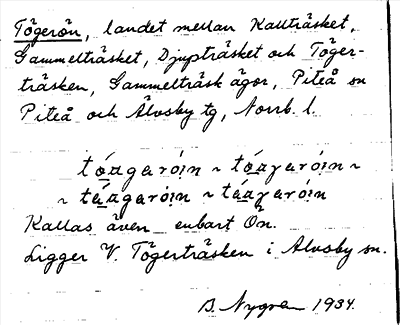 Tögerön, landet mellan Kallträsket,
Gammelträsket, Djupträsket och Töger-
träsken, Gammelträsk ägor, Piteå sn
Piteå och Älvsby tg, Norrb. l.
tóngaróın ~ tónɣaróın ~
~ tángaróın ~ tánɣaróın
Kallas även enbart Ön.
Ligger V. Tögerträsken i Älvsby sn.
B. Nygren 1934.